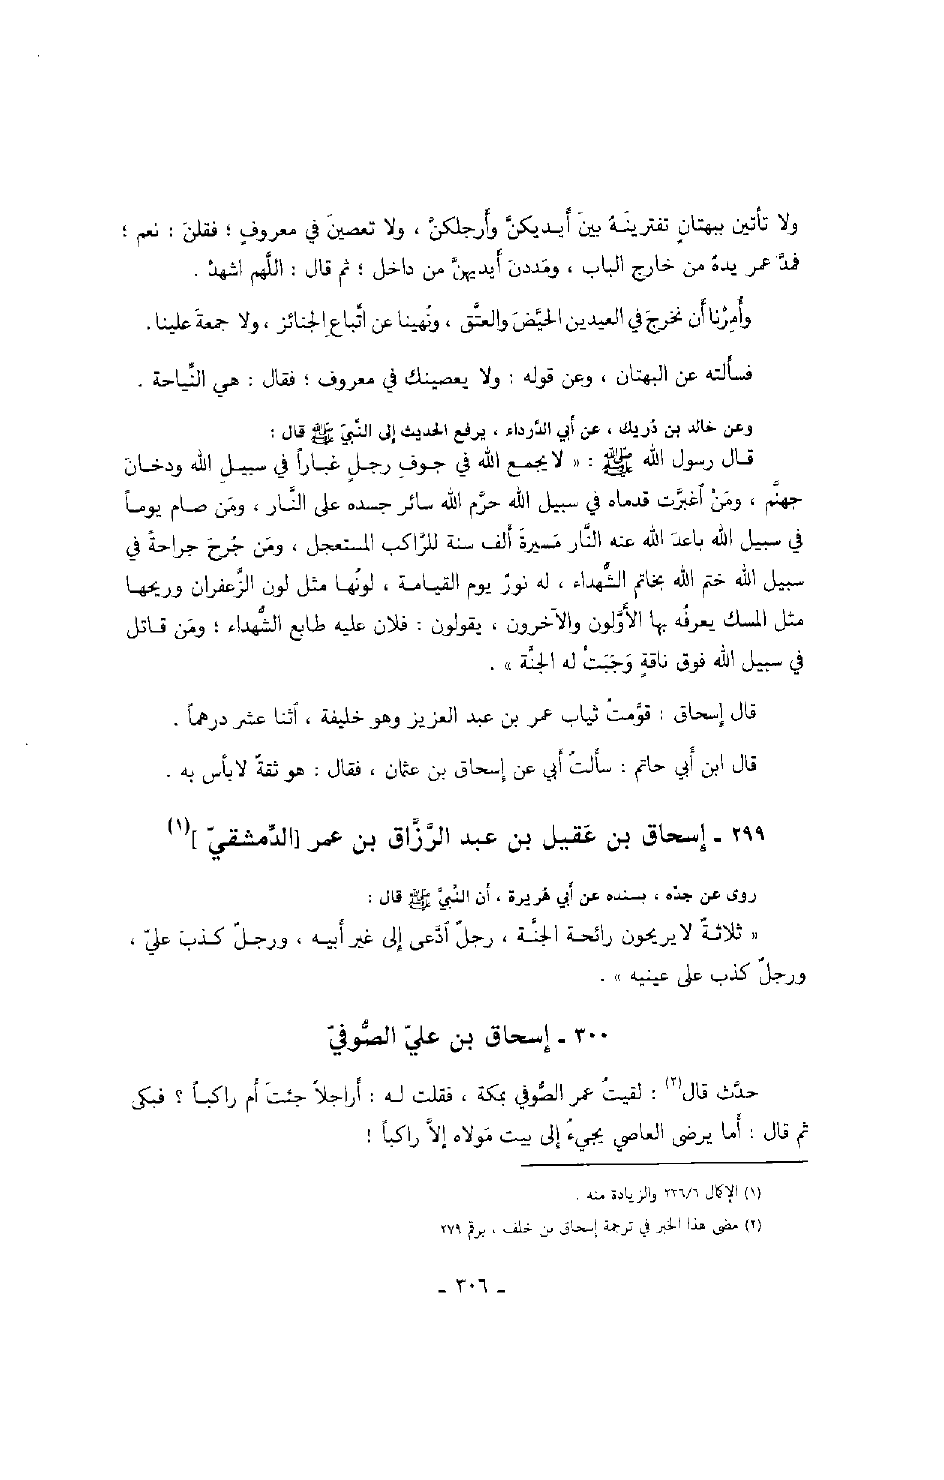 ولا تأتين ببهتانٍ تفترينَـهُ بينَ أَيـديكنَّ وأَرجلكنَّ ، ولا تعصينَ في معروفٍ ؛ فقلنَ : نعم ؛
فمدَّ عمر يدهُ من خارج الباب ، ومَددنَ أيديهنَّ من داخل ؛ ثم قال : اللَّهم اشهدْ .
وأُمِرْنا أن نخرجَ في العيدين الحيَّضَ والعتَّق ، ونُهينا عن اتِّباعِ الجنائز ، ولا جمعةَ علينا .
فسألته عن البهتان ، وعن قوله : ولا يعصينك في معروف ؛ فقال : هي النِّياحة .
وعن خالد بن دُريك ، عن أبي الدَّرداء ، يرفع الحديث إلى النَّبيّ ﷺ قال :
قـال رسول الله ﷺ : « لا يجمـع الله في جـوفِ رجـلٍ غبـاراً في سبيـلِ الله ودخـان
جهنَّم ، ومَنْ اَغبرَّت قدماه في سبيل الله حرَّم الله سائر جسده على النَّـار ، ومَن صـام يومـاً
في سبيل الله باعدَ الله عنه النَّار مَسيرةَ ألف سنة للرَّاكب المستعجل ، ومَن جُرحَ جراحةً في
سبيل الله ختم الله بخاتم الشُّهداء ، له نورٌ يوم القيـامـة ، لونُهـا مثل لون الزَّعفران وريحهـا
مثل المسك يعرفُه بها الأوَّلون والآخرون ، يقولون : فلان عليه طابع الشُّهداء ؛ ومَن قـاتل
في سبيل الله فوق ناقةٍ وَجَبَتْ له الجنَّة » .
قال إسحاق : قوَّمتُ ثياب عمر بن عبد العزيز وهو خليفة ، اَثنا عشر درهماً .
قال ابن أبي حاتم : سألتُ أبي عن إسحاق بن عثمان ، فقال : هو ثقةٌ لا بأس به .
٢٩٩ ـ إسحاق بن عَقيل بن عبد الرَّزَّاق بن عمر [الدِّمشقيّ](١)
روى عن جدّه ، بسنده عن أبي هُريرة ، أن النَّبيَّ ﷺ قال :
« ثلاثـةٌ لا يريحون رائحة الجنَّة ، رجلٌ اَدَّعى إلى غير أبيـه ، ورجـلٌ كـذبَ عليَّ ،
ورجلٌ كذب على عينيه » .
٣٠٠ ـ إسحاق بن عليّ الصُّوفيّ
حدَّث قال(٢) : لقيتُ عمر الصُّوفي بمكة ، فقلت لـه : أراجلاً جئتَ أم راكبـاً ؟ فبكى
ثم قال : أما يرضى العاصي يجيءُ إلى بيت مَولاه إلاَّ راكباً !
(١) الإكمال ٢٣٦/٦ والزيادة منه .
(٢) مضى هذا الخبر في ترجمة إسحاق بن خلف ، برقم ٢٧٩
ـ ٣٠٦ ـ